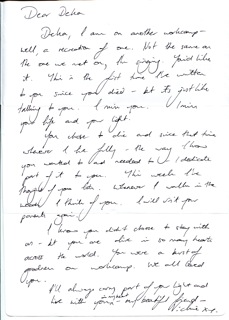 Dear Delia
Delia, I am on another workcamp -
well, a recreation of one. Not the same as
the one we met on, I'm You'd like
it. This is the first time I've written
to you since you died - but its just like
talking to you. I miss you. I miss
your life and your light.
You chose to die and since that time
whenever I live fully - the way I know
you wanted to and needed to - I dedicate
part of it to you. This week I've
thought of you lots. Whenever I walk in the
woods I think of you. I will visit your
parents again.
I know you didn't choose to stay with
us - but you are alive in so many hearts
across the world. You were a burst of
goodness on workcamp. We all loved
you.
I'll always carry part of your light and
love with you, my beautiful friend -